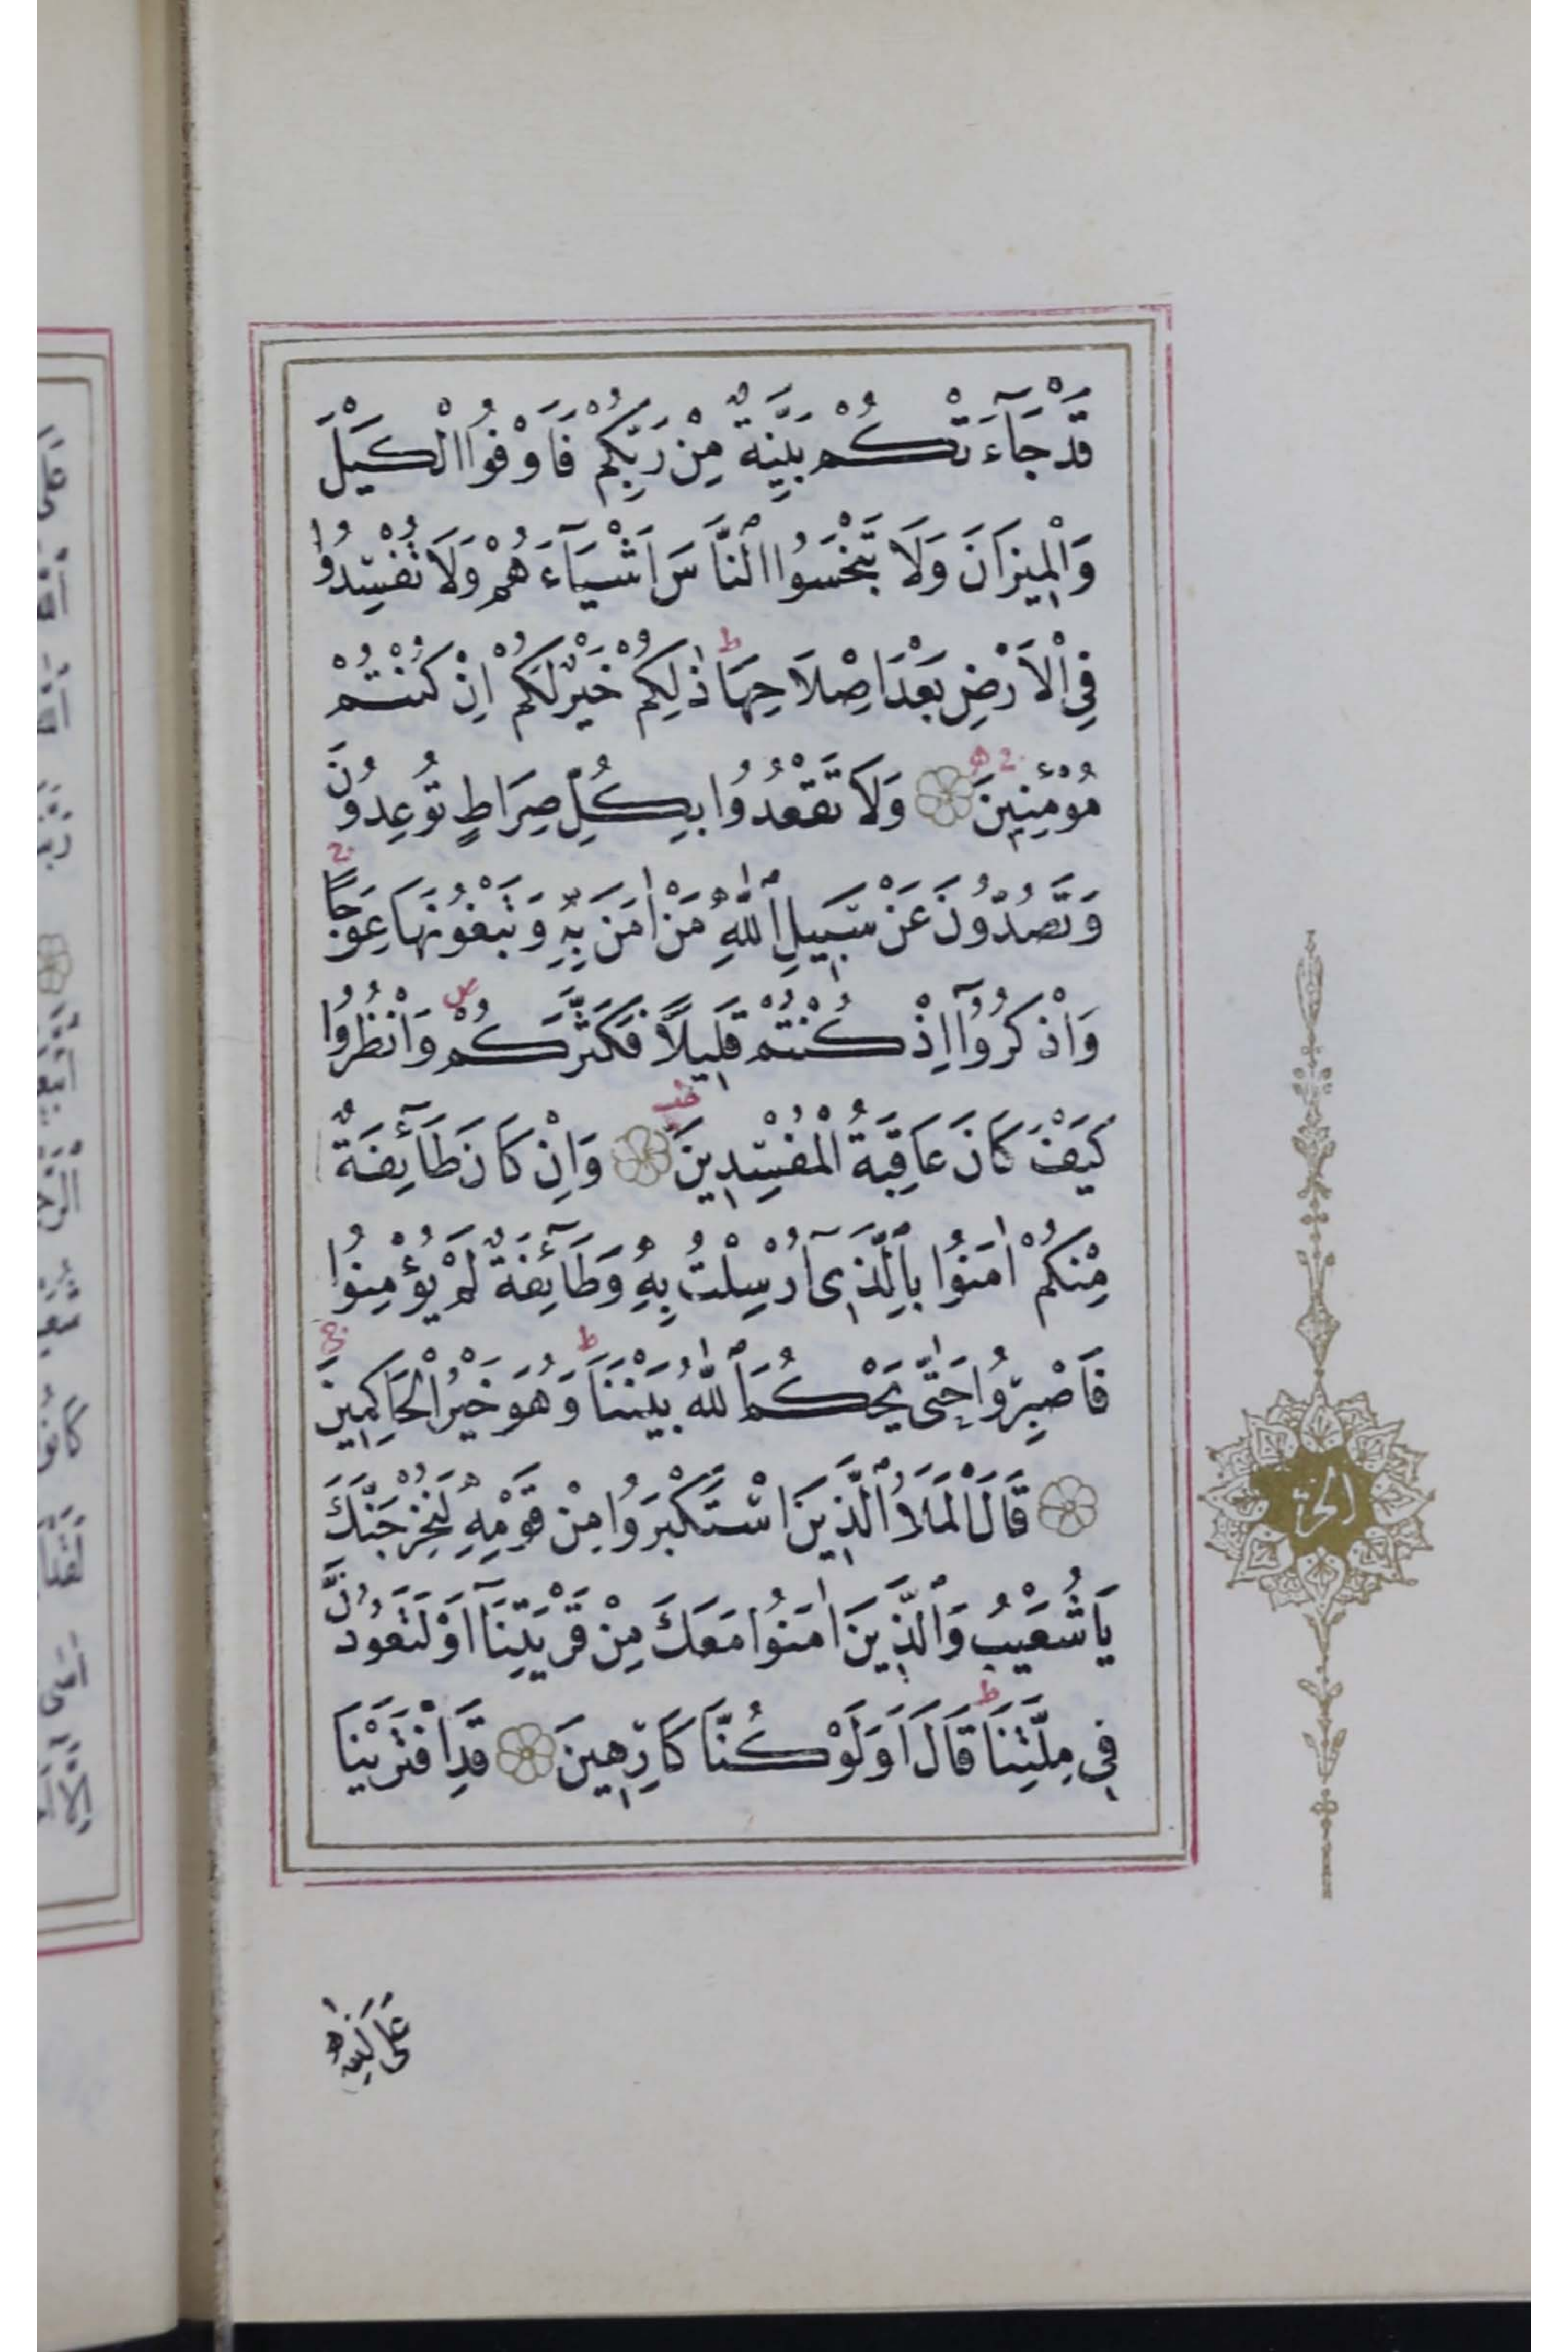 قَدْ جَآءَتْكُمْ بَيِّنَةٌ مِنْ رَبِّكُمْ فَاَوْفُوا الْكَيْلَ
وَالْمِيزَانَ وَلَا تَبْخَسُوا النَّاسَ اَشْيَآءَهُمْ وَلَا تُفْسِدُوا
فِي الْاَرْضِ بَعْدَ اِصْلَاحِهَا ط ذٰلِكُمْ خَيْرٌ لَكُمْ اِنْ كُنْتُمْ
مُؤْمِنِينَ وَلَا تَقْعُدُوا بِكُلِّ صِرَاطٍ تُوعِدُونَ
وَتَصُدُّونَ عَنْ سَبِيلِ اللّٰهِ مَنْ اٰمَنَ بِهِ وَتَبْغُونَهَا عِوَجًا ج
وَاذْكُرُوٓا اِذْ كُنْتُمْ قَلِيلًا فَكَثَّرَكُمْ ص وَانْظُرُوا
كَيْفَ كَانَ عَاقِبَةُ الْمُفْسِدِينَ وَاِنْ كَانَ طَآئِفَةٌ
مِنْكُمْ اٰمَنُوا بِالَّذِىٓ اُرْسِلْتُ بِهِ وَطَآئِفَةٌ لَمْ يُؤْمِنُوا
فَاصْبِرُوا حَتّٰى يَحْكُمَ اللّٰهُ بَيْنَنَا ط وَهُوَ خَيْرُ الْحَاكِمِينَ
قَالَ الْمَلَاُ الَّذِينَ اسْتَكْبَرُوا مِنْ قَوْمِهِ لَنُخْرِجَنَّكَ
الحزب
يَا شُعَيْبُ وَالَّذِينَ اٰمَنُوا مَعَكَ مِنْ قَرْيَتِنَآ اَوْ لَتَعُودُنَّ
فِي مِلَّتِنَا ط قَالَ اَوَلَوْ كُنَّا كَارِهِينَ قَدِ افْتَرَيْنَا
عَلَى اللّٰهِ